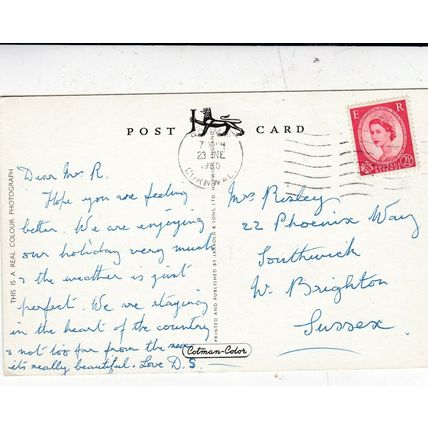 POST CARD
E R
7 PM
23 JNE
1960
CORNWALL
Dear Mrs R.
Hope you are feeling
better. We are enjoying
our holiday very much
& the weather is just
perfect. We are staying
in the heart of the country
& not too far from the sea
its really beautiful. Love D. S
Mrs Risley
22 Phoenix Way
Southwick
W. Brighton
Sussex.
THIS IS A REAL COLOUR PHOTOGRAPH
PRINTED AND PUBLISHED BY JARROLD & SONS LTD.
Cotman-Color